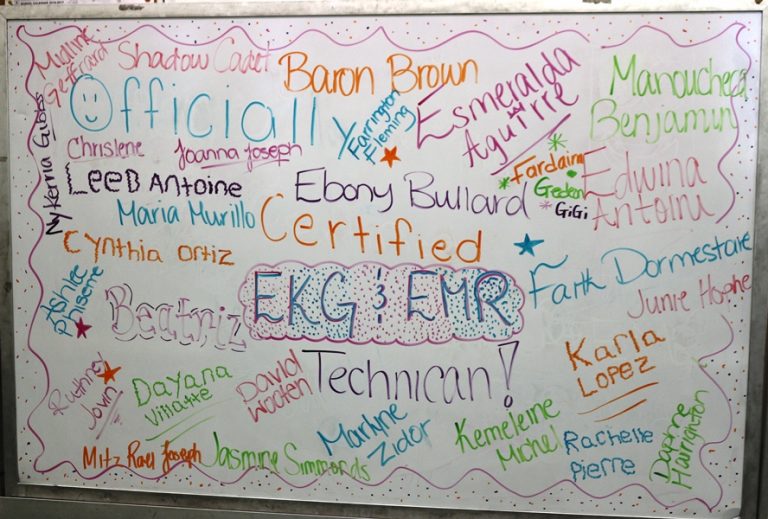 Midline
Geffrard
Shadow Cadet
Baron Brown
Esmeralda
Aguirre
Manoucheca
Benjamin
Officially
Farrington
Fleming
NyKerria Gibbs
Chrislene
Joanna Joseph
Fardain
Geden
GiGi
Edwina
Antoine
LeeB Antoine
Ebony Bullard
Maria Murillo
Certified
Cynthia Ortiz
Faith Dormestoire
Ashlee
Philseme
Beatriz
EKG & EMR
Junie
Karla
Lopez
Technican!
Dayana
Villatte
David
Wooten
Marlyne
Zidor
Kemeleine
Michel
Rachelle
Pierre
Daphne
Harrington
Mitz Rael Joseph
Jasmine Simmonds